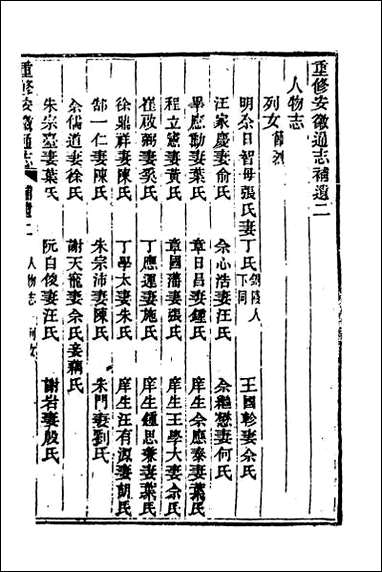 重修安徽通志補遺二
人物志
列女
明佘日智母張氏妻丁氏 人下同 王國軫妻佘氏
汪家慶妻俞氏 佘心浩妻汪氏 佘繼懋妻何氏
畢應勳妻葉氏 章日昌妻鍾氏 庠生佘應泰妻葉氏
程立憲妻黃氏 章國藩妻張氏 庠生王學大妻佘氏
崔啟弼妻吳氏 丁應運妻施氏 庠生鍾思泰妻葉氏
徐鼎祥妻陳氏 丁學太妻朱氏 庠生汪有源妻胡氏
郜一仁妻陳氏 朱宗沛妻陳氏 朱門妻劉氏
佘儒道妻徐氏 謝天龍妻佘氏妾藕氏
朱宗臺妻葉氏 阮自俊妻汪氏 謝岩妻殷氏
重修安徽通志 補遺二 人物志 列女